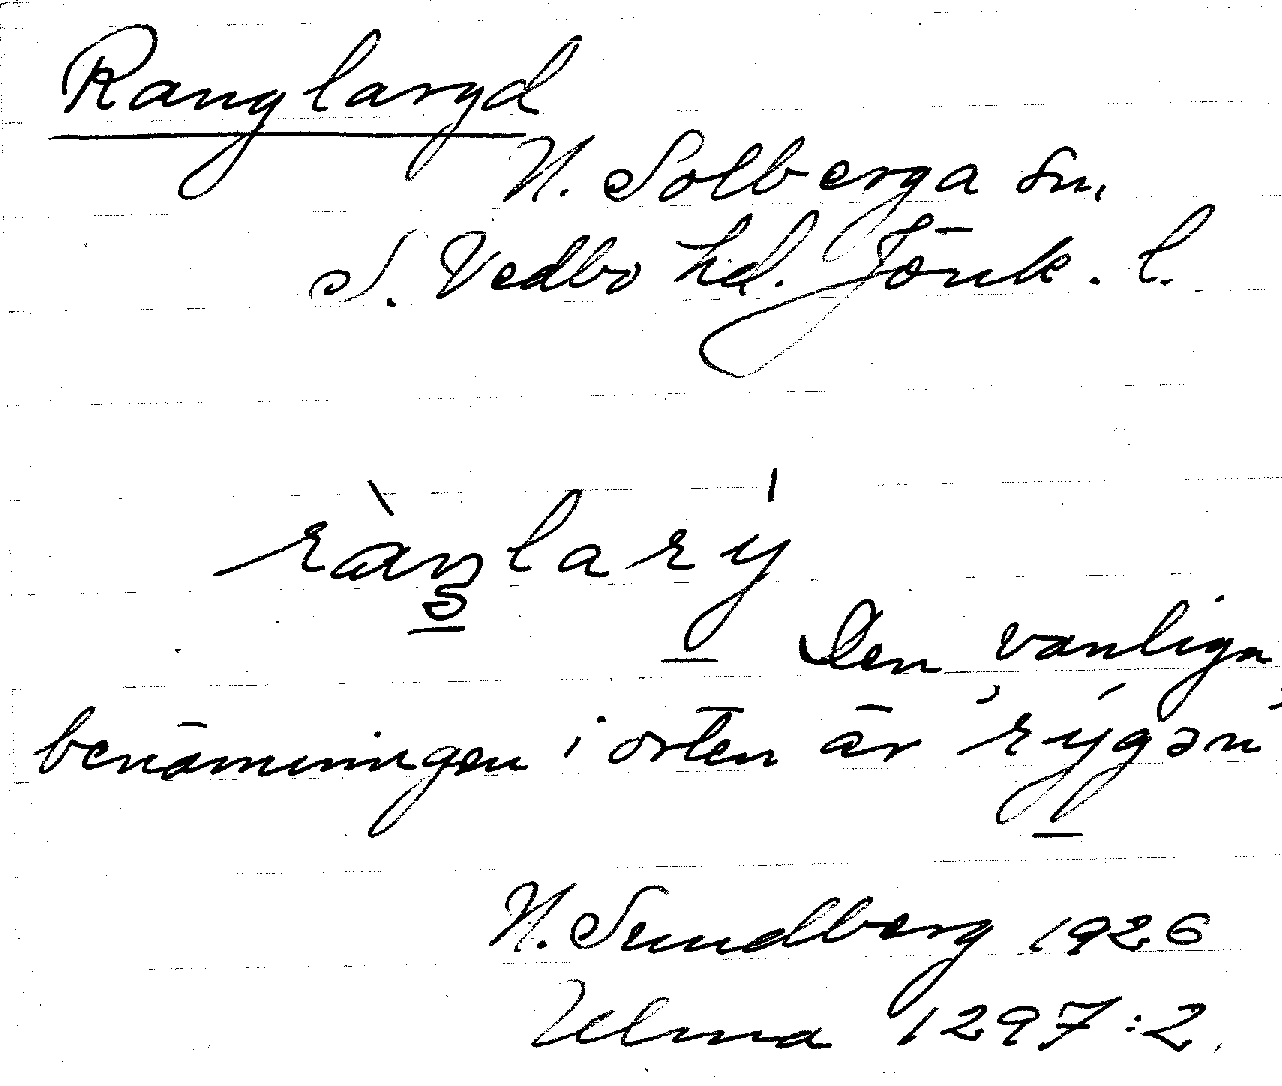 Ranglaryd
N. Solberga sn,
S. Vedbo hd. Jönk. l.
ràŋlarý
Den vanliga
benämningen i orten är rýgən
N. Sundberg 1926
Ulma 1297:2.